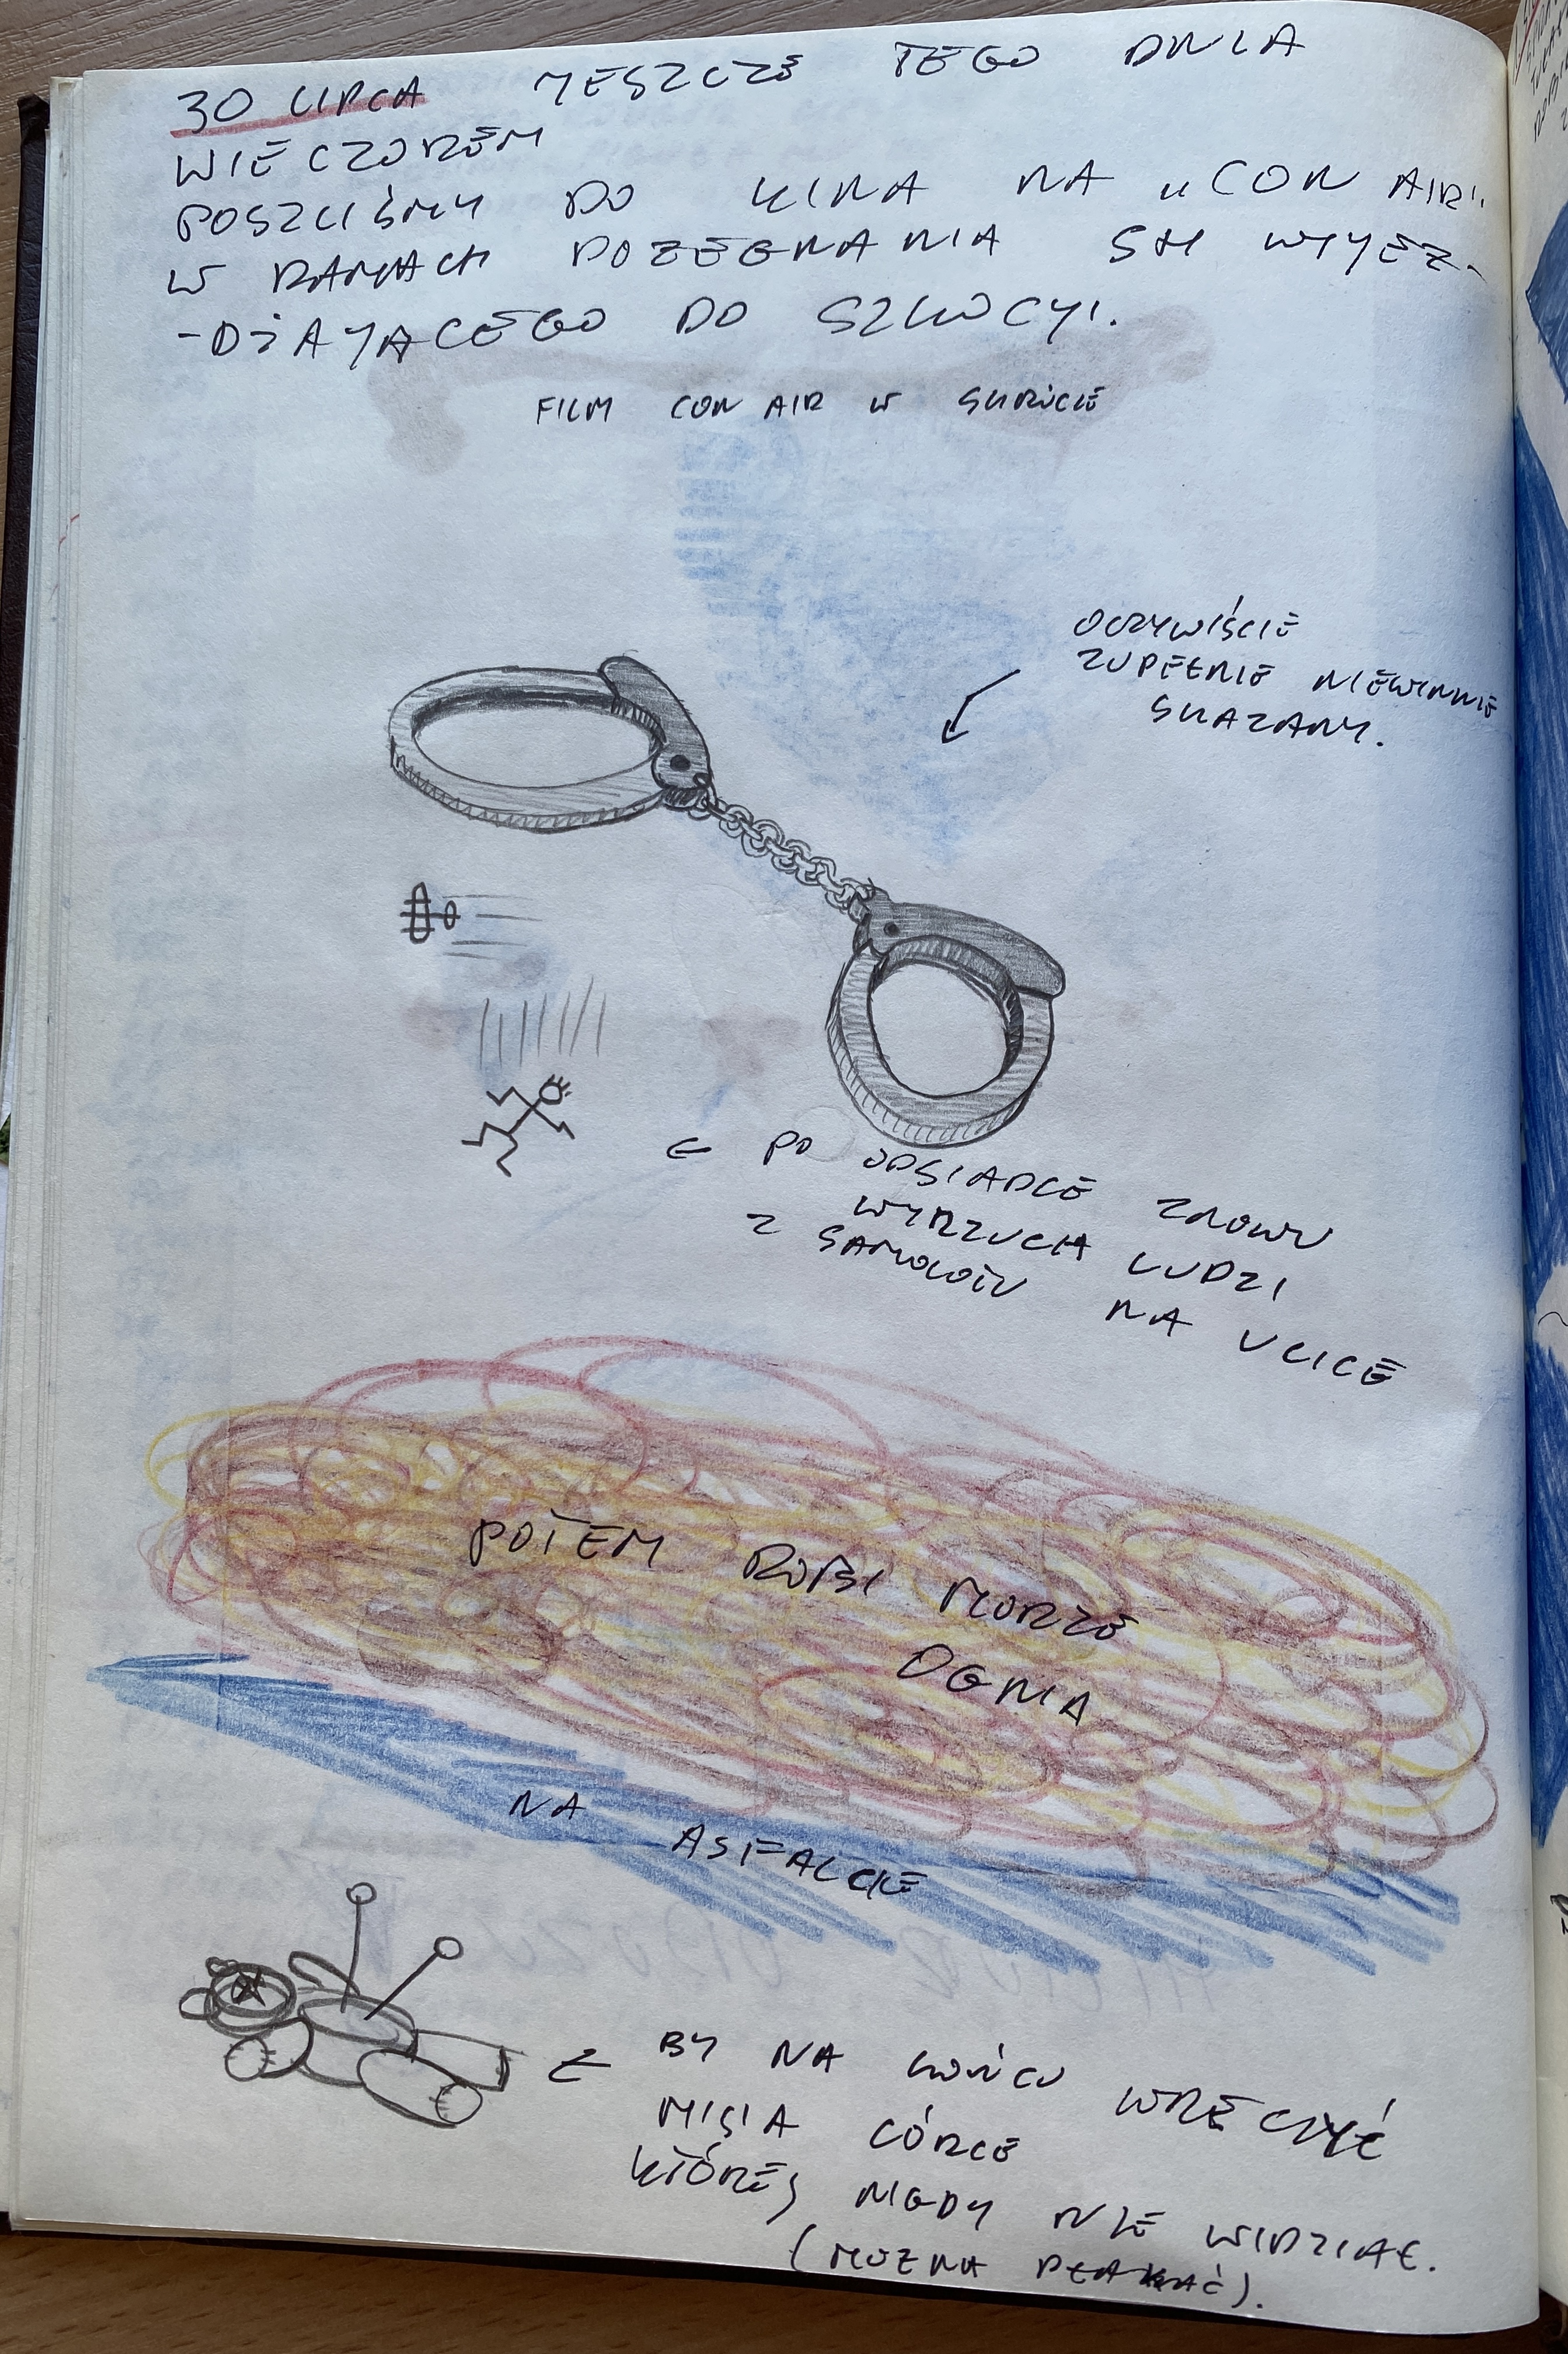 30 LIPCA JESZCZE TEGO DNIA
WIECZOREM
POSZLIŚMY DO KINA NA "CON AIR"
W RAMACH POŻEGNANIA SH WYJEŻ-
-DŻAJĄCEGO DO SZKOCJI.
FILM CON AIR W SKRÓCIE
OCZYWIŚCIE
ZUPEŁNIE NIEWINNIE
SKAZANY.
← PO ODSIADCE ZNOWU
WYRZUCA LUDZI
Z SAMOLOTU NA ULICE
POTEM ROBI MORZE
OGNIA
NA ASFALCIE
← BY NA KOŃCU WRĘCZYĆ
MISIA CÓRCE
KTÓREJ NIGDY NIE WIDZIAŁ.
(MOŻNA PŁAKAĆ).